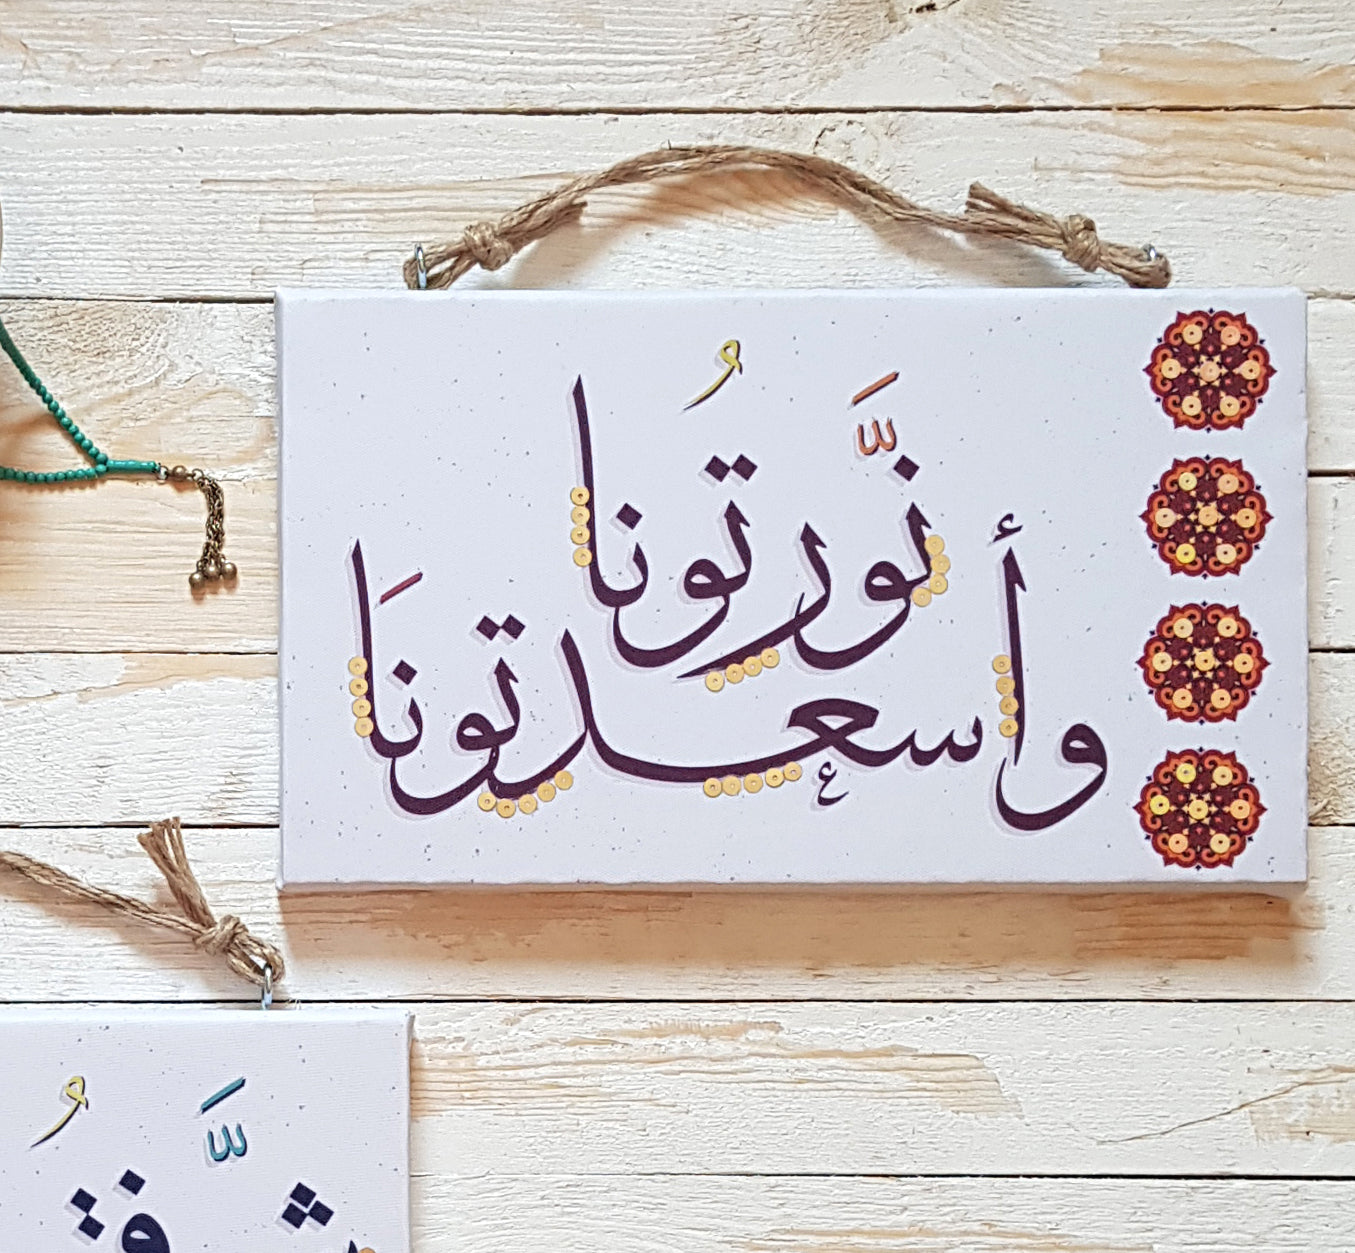 نوَّرتُونا
وأسعدتونَا